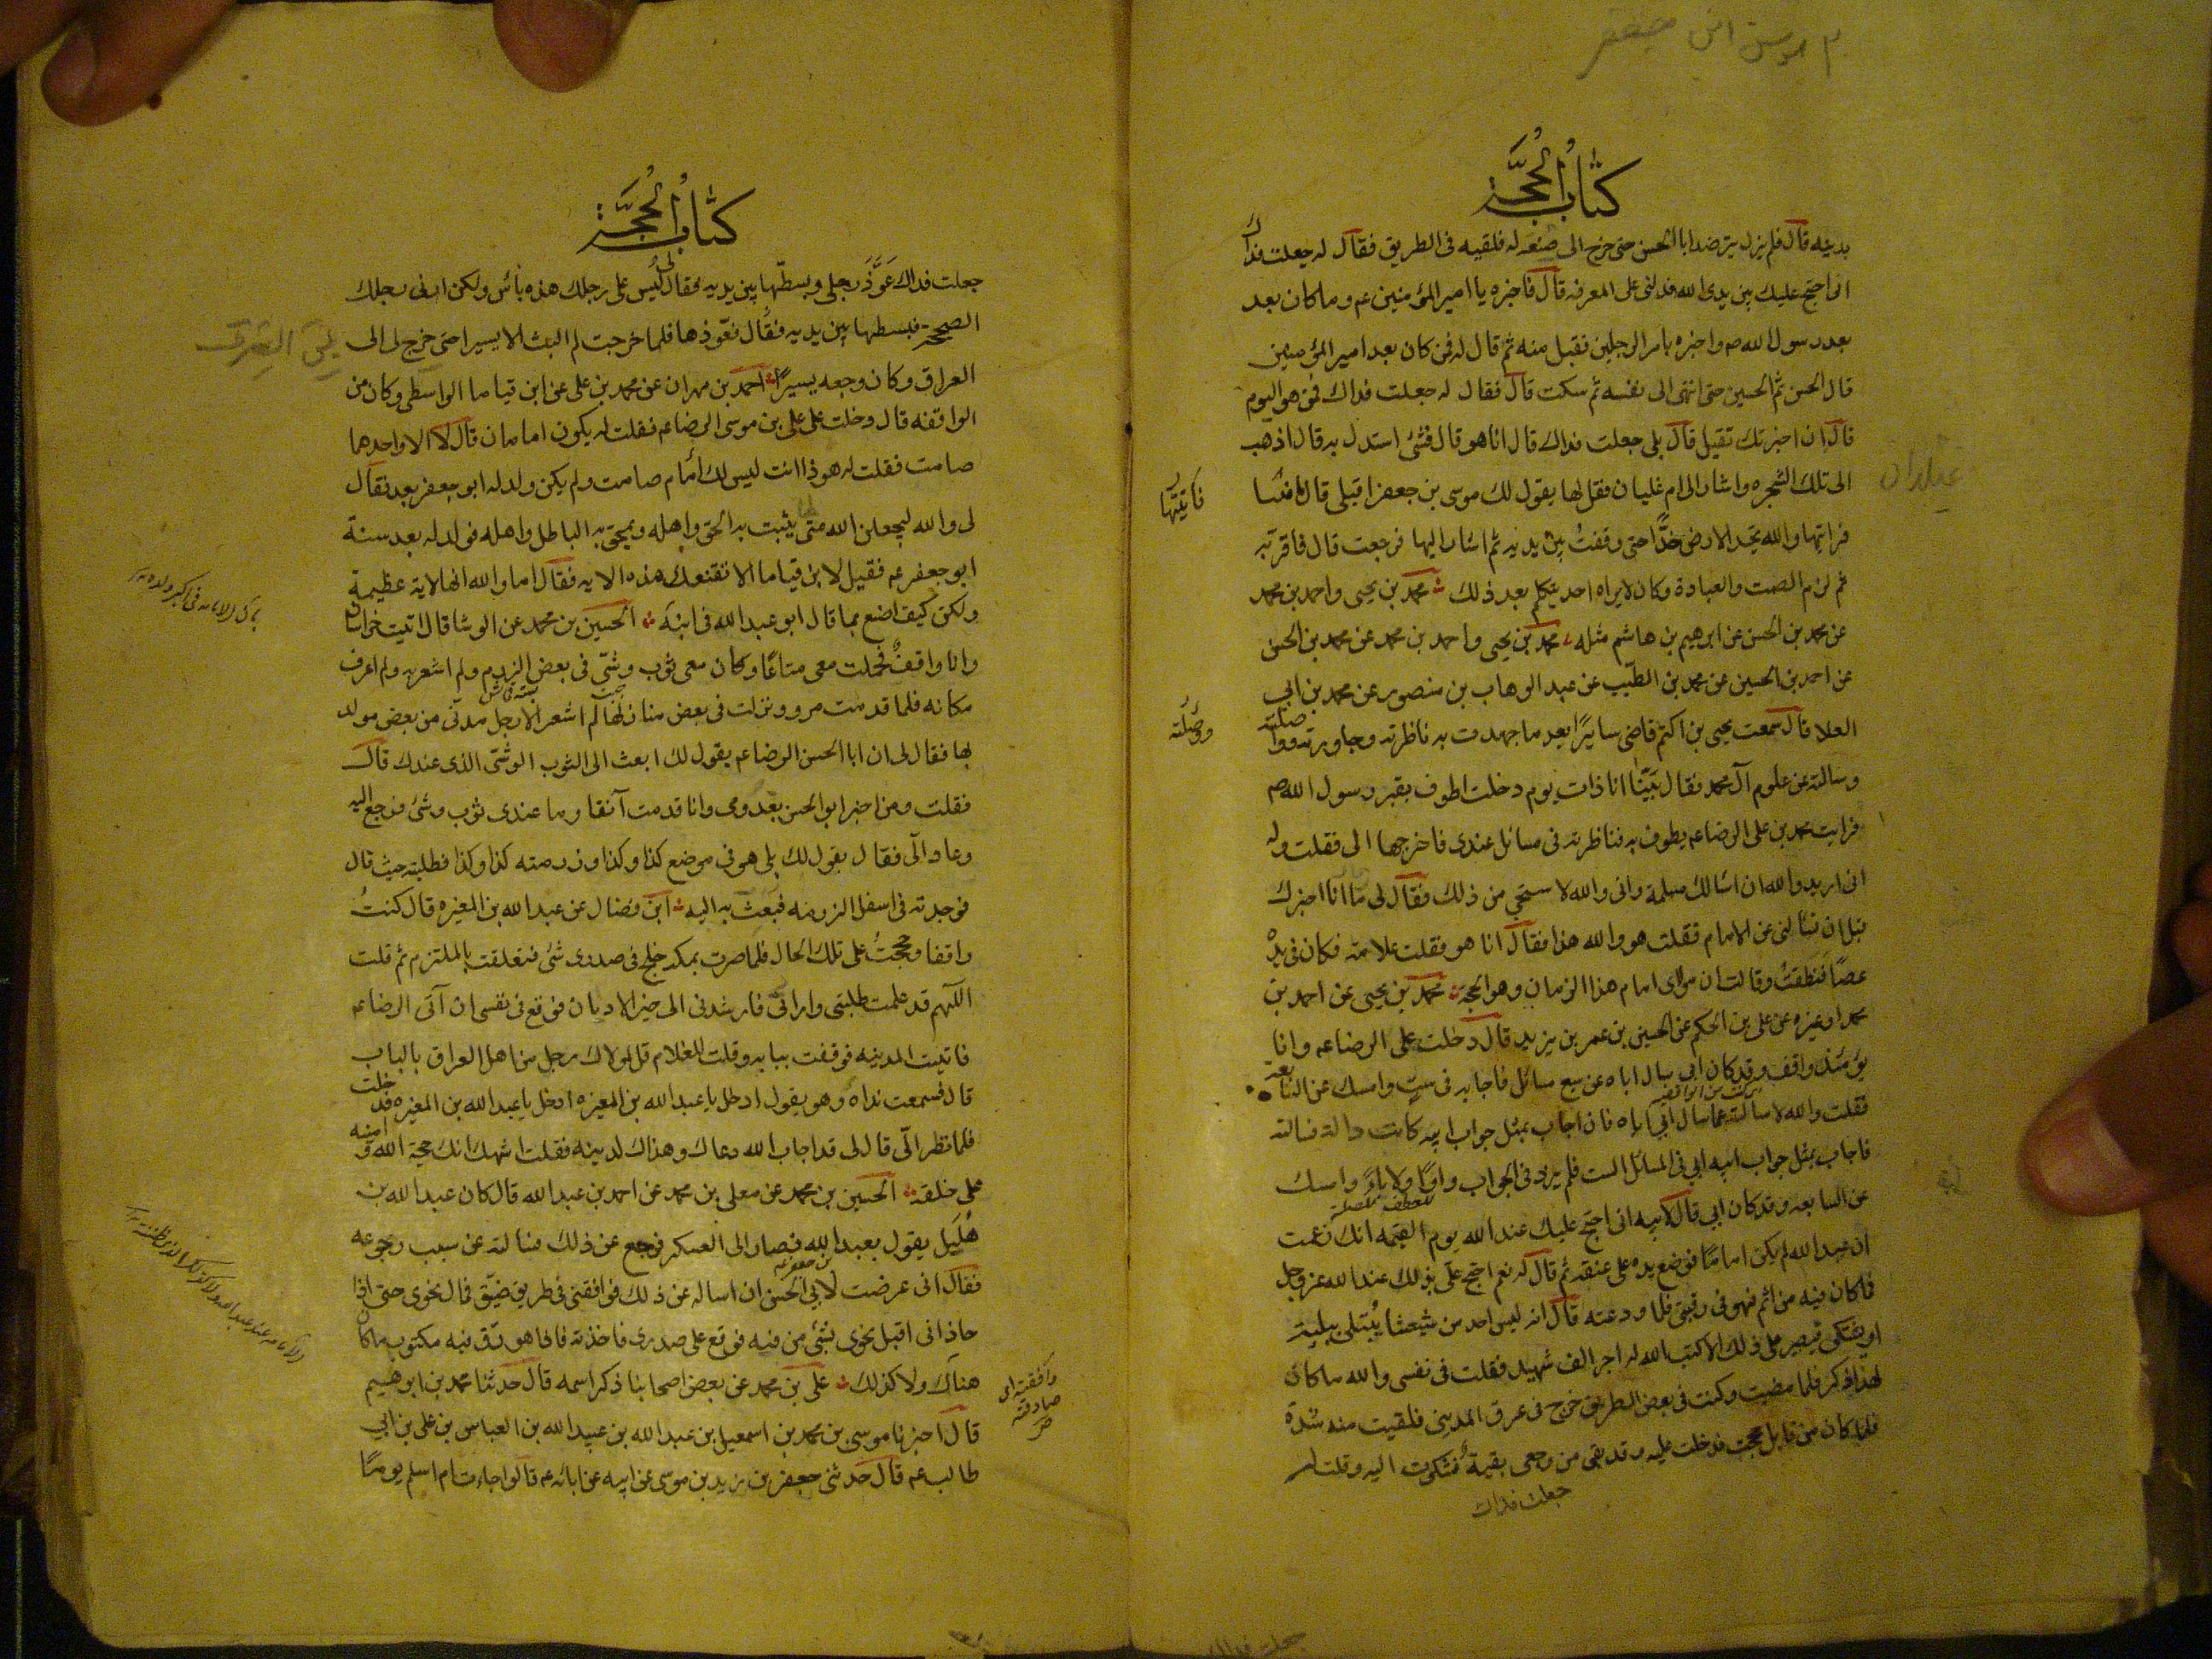 كتاب الحجة
بدينه قال فلم يزل يترصد ابا الحسن حتى خرج الى ضيعه له فلقيه فى الطريق فقال له جعلت فداك
انى احتج عليك بين يدى الله فدلنى على المعرفه قال فاخبره يا امير المؤمنين عم وما كان بعد
بعد رسول الله ص واخبره بامر الرجلين فقبل منه ثم قال له فمن كان بعد امير المؤمنين
قال الحسن ثم الحسين حتى انتهى الى نفسه ثم سكت قال فقال له جعلت فداك فمن هو اليوم
قال ان اخبرتك تقبل قال بلى جعلت فداك قال انا هو قال فشئ استدل به قال اذهب
الى تلك الشجره واشار الى ام غيلان فقل لها يقول لك موسى بن جعفر اقبلى قال
فاتيتها
فرايتها والله تخد الارض خدًّا حتى وقفتُ بين يديه ثم اشار اليها فرجعت قال فاقر به
ثم لزم الصمت والعبادة وكان لا يراه احد يتكلم بعد ذلك محمد بن يحيى واحمد بن محمد
عن محمد بن الحسن عن ابرهيم بن هاشم مثله محمد بن يحيى واحمد بن محمد عن محمد بن الحسن
عن احمد بن الحسين عن محمد بن الطيّب عن عبد الوهاب بن منصور عن محمد بن ابى
العلا قال سمعت يحيى بن اكثم قاضى سايرًا بعد ما جهدت به ناظرته وحاورته وواصلته
وسالته عن علوم آل محمد فقال بَيّنا انا ذات يوم دخلت اطوف بقبر رسول الله ص
فرايت محمد بن على الرضا عم يطوف به فناظرته فى مسائل عندى فاخرجها الى فقلت له
انى اريد والله ان اسالك مسلمة وانى والله لاستحيى من ذلك فقال لى انا اخبرك
قبل ان تسألنى عن الامام فقلت هو والله هذا فقال انا هو فقلت علامته فكان فى يده
عصًا فنطقتْ وقالت ان مولاى امام هذا الزمان وهو الحجة محمد بن يحيى عن احمد بن
محمد او غيره عن على بن الحكم عن الحسين بن عمر بن يزيد قال دخلت على الرضا عم وانا
يؤمئذ واقف وقد كان ابى سال اباه عن سبع مسائل فاجابه فى ست وامسك عن السابعه
فقلت والله لاسالنه عما سال ابى اباه فان اجاب بمثل جواب ابيه كانت دالة فسالته
فاجاب بمثل جواب ابيه ابى فى المسائل الست فلم يزد فى الجواب واوًا ولا ياءً وامسك
عن السابعه وقد كان ابى قال لابيه انى احتج عليك عند الله يوم القيمه انك زعمت
ان عبد الله لم يكن امامًا فوضع يده على عنقه ثم قال له نعم احتج علَى بذلك عند الله عز وجل
فما كان فيه من اثم فهو فى رقبتى فلما ودعته قال انه ليس احد من شيعتنا يُبتلى ببلية
او يشتكى فيصبر على ذلك الا كتب الله له اجر الف شهيد فقلت فى نفسى والله ما كان
لهذا ذكر فلما مضيت وكنت فى بعض الطريق خرج فى عرق المدينى فلقيت منه شدة
فلما كان من قابل حججت فدخلت عليه وقد بقى من وجعى بقيةٌ فشكوت اليه وقلت له
جعلت فداك
كتاب الحجة
جعلت فداك عَوِّذ رجلى وبسطتها بين يديه فقال لى ليس على رجلك هذه باس ولكن ارنى رجلك
الصحيحة فبسطتها بين يديه فقال فعوّذها فلما خرجت لم البث الا يسيرا حتى خرج لى
العراق وكان وجعه يسيرًا احمد بن مهران عن محمد بن على عن ابن قياما الواسطى وكان من
الواقفه قال دخلت على على بن موسى الرضا عم فقلت له يكون امامان قال لا الا واحدهما
صامت فقلت له هو ذا انت ليس لك امام صامت ولم يكن ولد له ابو جعفر بعد فقال
لى والله ليجعلن الله منى يثبت به الحق واهله ويمحق به الباطل واهله فولد له بعد سنة
ابو جعفر عم فقيل لابن قياما الا تقنعك هذه الايه فقال اما والله انها لاية عظيمة
ولكن كيف اصنع بما قال ابو عبد الله فى ابنه الحسين بن محمد عن الوشا قال اتيت خراسان
وانا واقفٌ فحملت معى متاعًا وكان معى ثوب وشّى فى بعض الرزم ولم اشعر به ولم اعرف
مكانه فلما قدمت مرو ونزلت فى بعض منازلها لم اشعر الا رجل مدنّى من بعض مولد
بها فقال لى ان ابا الحسن الرضا عم يقول لك ابعث الى الثوب الوشّى الذى عندك قال
فقلت ومن اخبر ابو الحسن بقدومى وانا قدمت آنفا وما عندى ثوب وشئ فرجع اليه
وعاد الّى فقال يقول لك بلى هو فى موضع كذا وكذا ورزمته كذا وكذا فطلبته حيث قال
فوجدته فى اسفل الرزمه فبعثْ به اليه ابن فضال عن عبد الله بن المغيره قال كنتُ
واقفا وحججتُ على تلك الحال فلما صرت بمكه خلج فى صدرى شئ فتعلقت بالملتزم ثم قلت
اللّهم قد علمت طلبتى وارادتى فارشدنى الى خير الاديان فوقع فى نفسى ان آتى الرضا عم
فاتيت المدينه فوقفت ببابه وقلت للغلام قل لمولاك رجل من اهل العراق بالباب
قال فسمعت نداه وهو يقول ادخل يا عبد الله بن المغيره ادخل يا عبد الله بن المغيره فدخلت
فلما نظر الّى قال لى قد اجاب الله دعاك وهداك لدينه فقلت اشهد انك حجة الله وامينه
على خلقه الحسين بن محمد عن معلى بن محمد عن احمد بن عبد الله قال كان عبد الله بن
هُلَيل يقول بعبد الله فصار الى العسكر فرجع عن ذلك فسالته عن سبب رجوعه
فقال انى عرضت لابى الحسن ان اساله عن ذلك فوافقنى فى طريق ضيّق فمال نحوى حتى اذا
حاذانى اقبل نحوى بشئ من فيه فوقع على صدرى فاخذته فاذا هو رَق فيه مكتوب ما كان
هناك ولا كذلك على بن محمد عن بعض اصحابنا ذكر اسمه قال حدثنا محمد بن ابرهيم
قال اخبرنا موسى بن محمد بن اسمعيل بن عبد الله بن عبيد الله بن العباس بن على بن ابى
طالب عم قال حدثنى جعفر بن زيد بن موسى عن ابيه عن ابائه عم قالوا جاءت ام اسلم يومًا